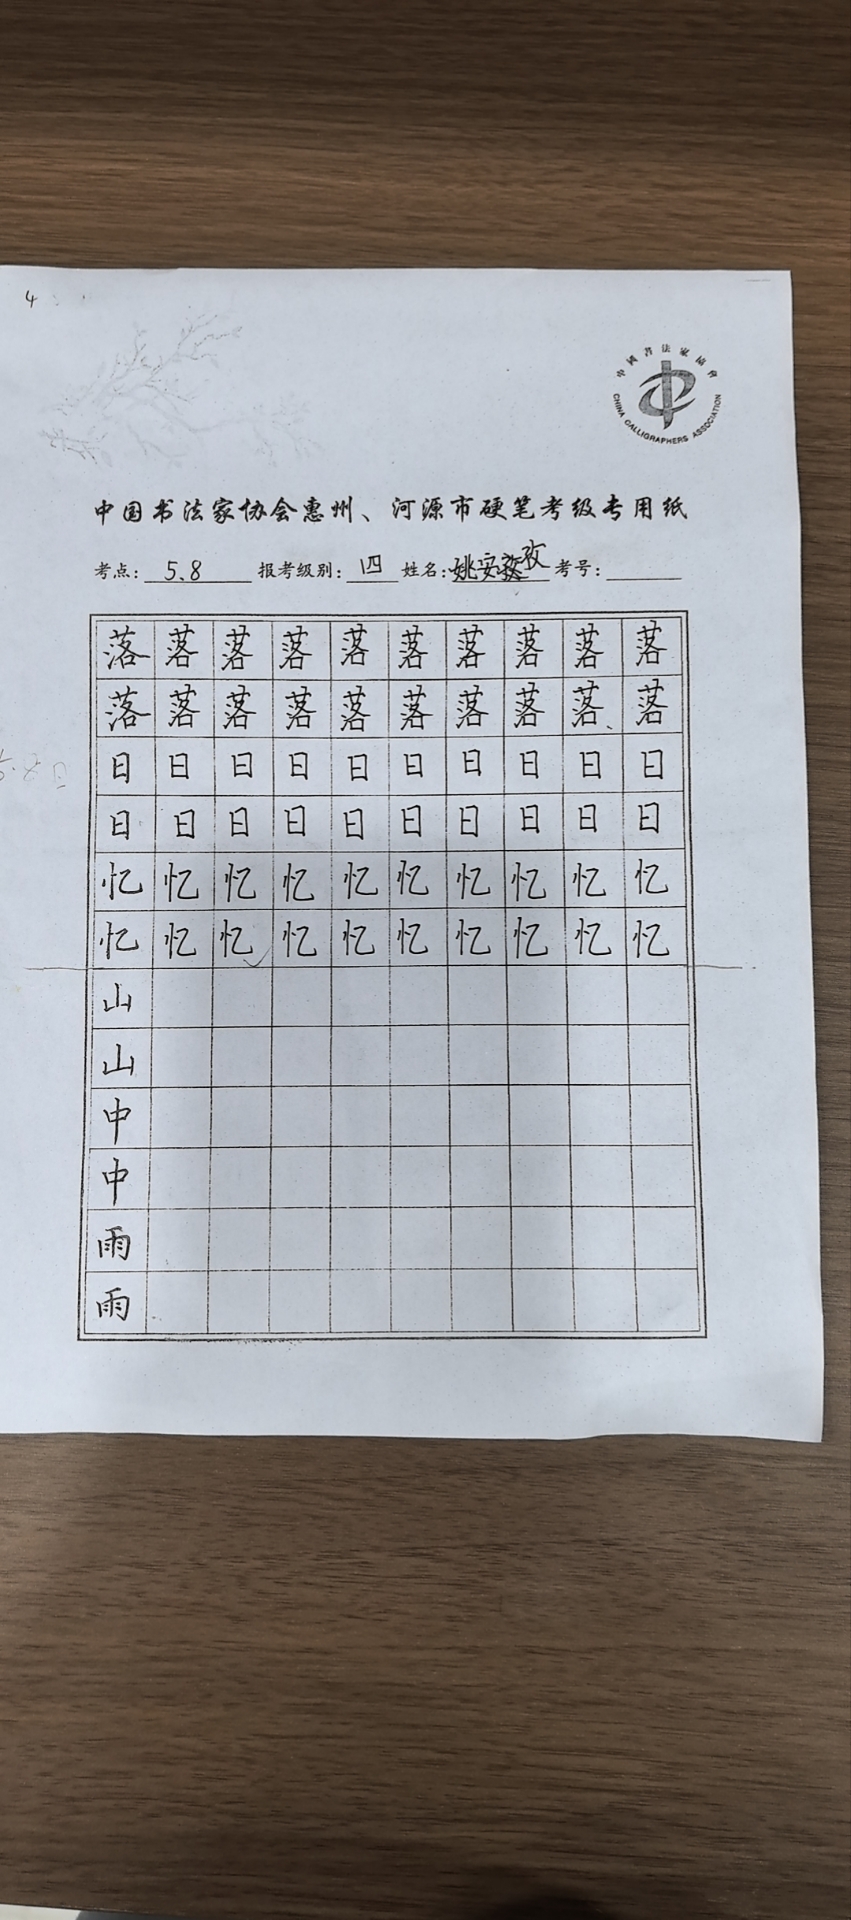 4
中國書法家協會
CHINA CALLIGRAPHERS ASSOCIATION
中国书法家协会惠州、河源市硬笔考级专用纸
考点: 5.8 报考级别: 四 姓名: 姚安 孜 考号:
落 落 落 落 落 落 落 落 落 落
落 落 落 落 落 落 落 落 落、 落
日 日 日 日 日 日 日 日 日 日
日 日 日 日 日 日 日 日 日 日
忆 忆 忆 忆 忆 忆 忆 忆 忆 忆
忆 忆 忆 忆 忆 忆 忆 忆 忆 忆
山
山
中
中
雨
雨